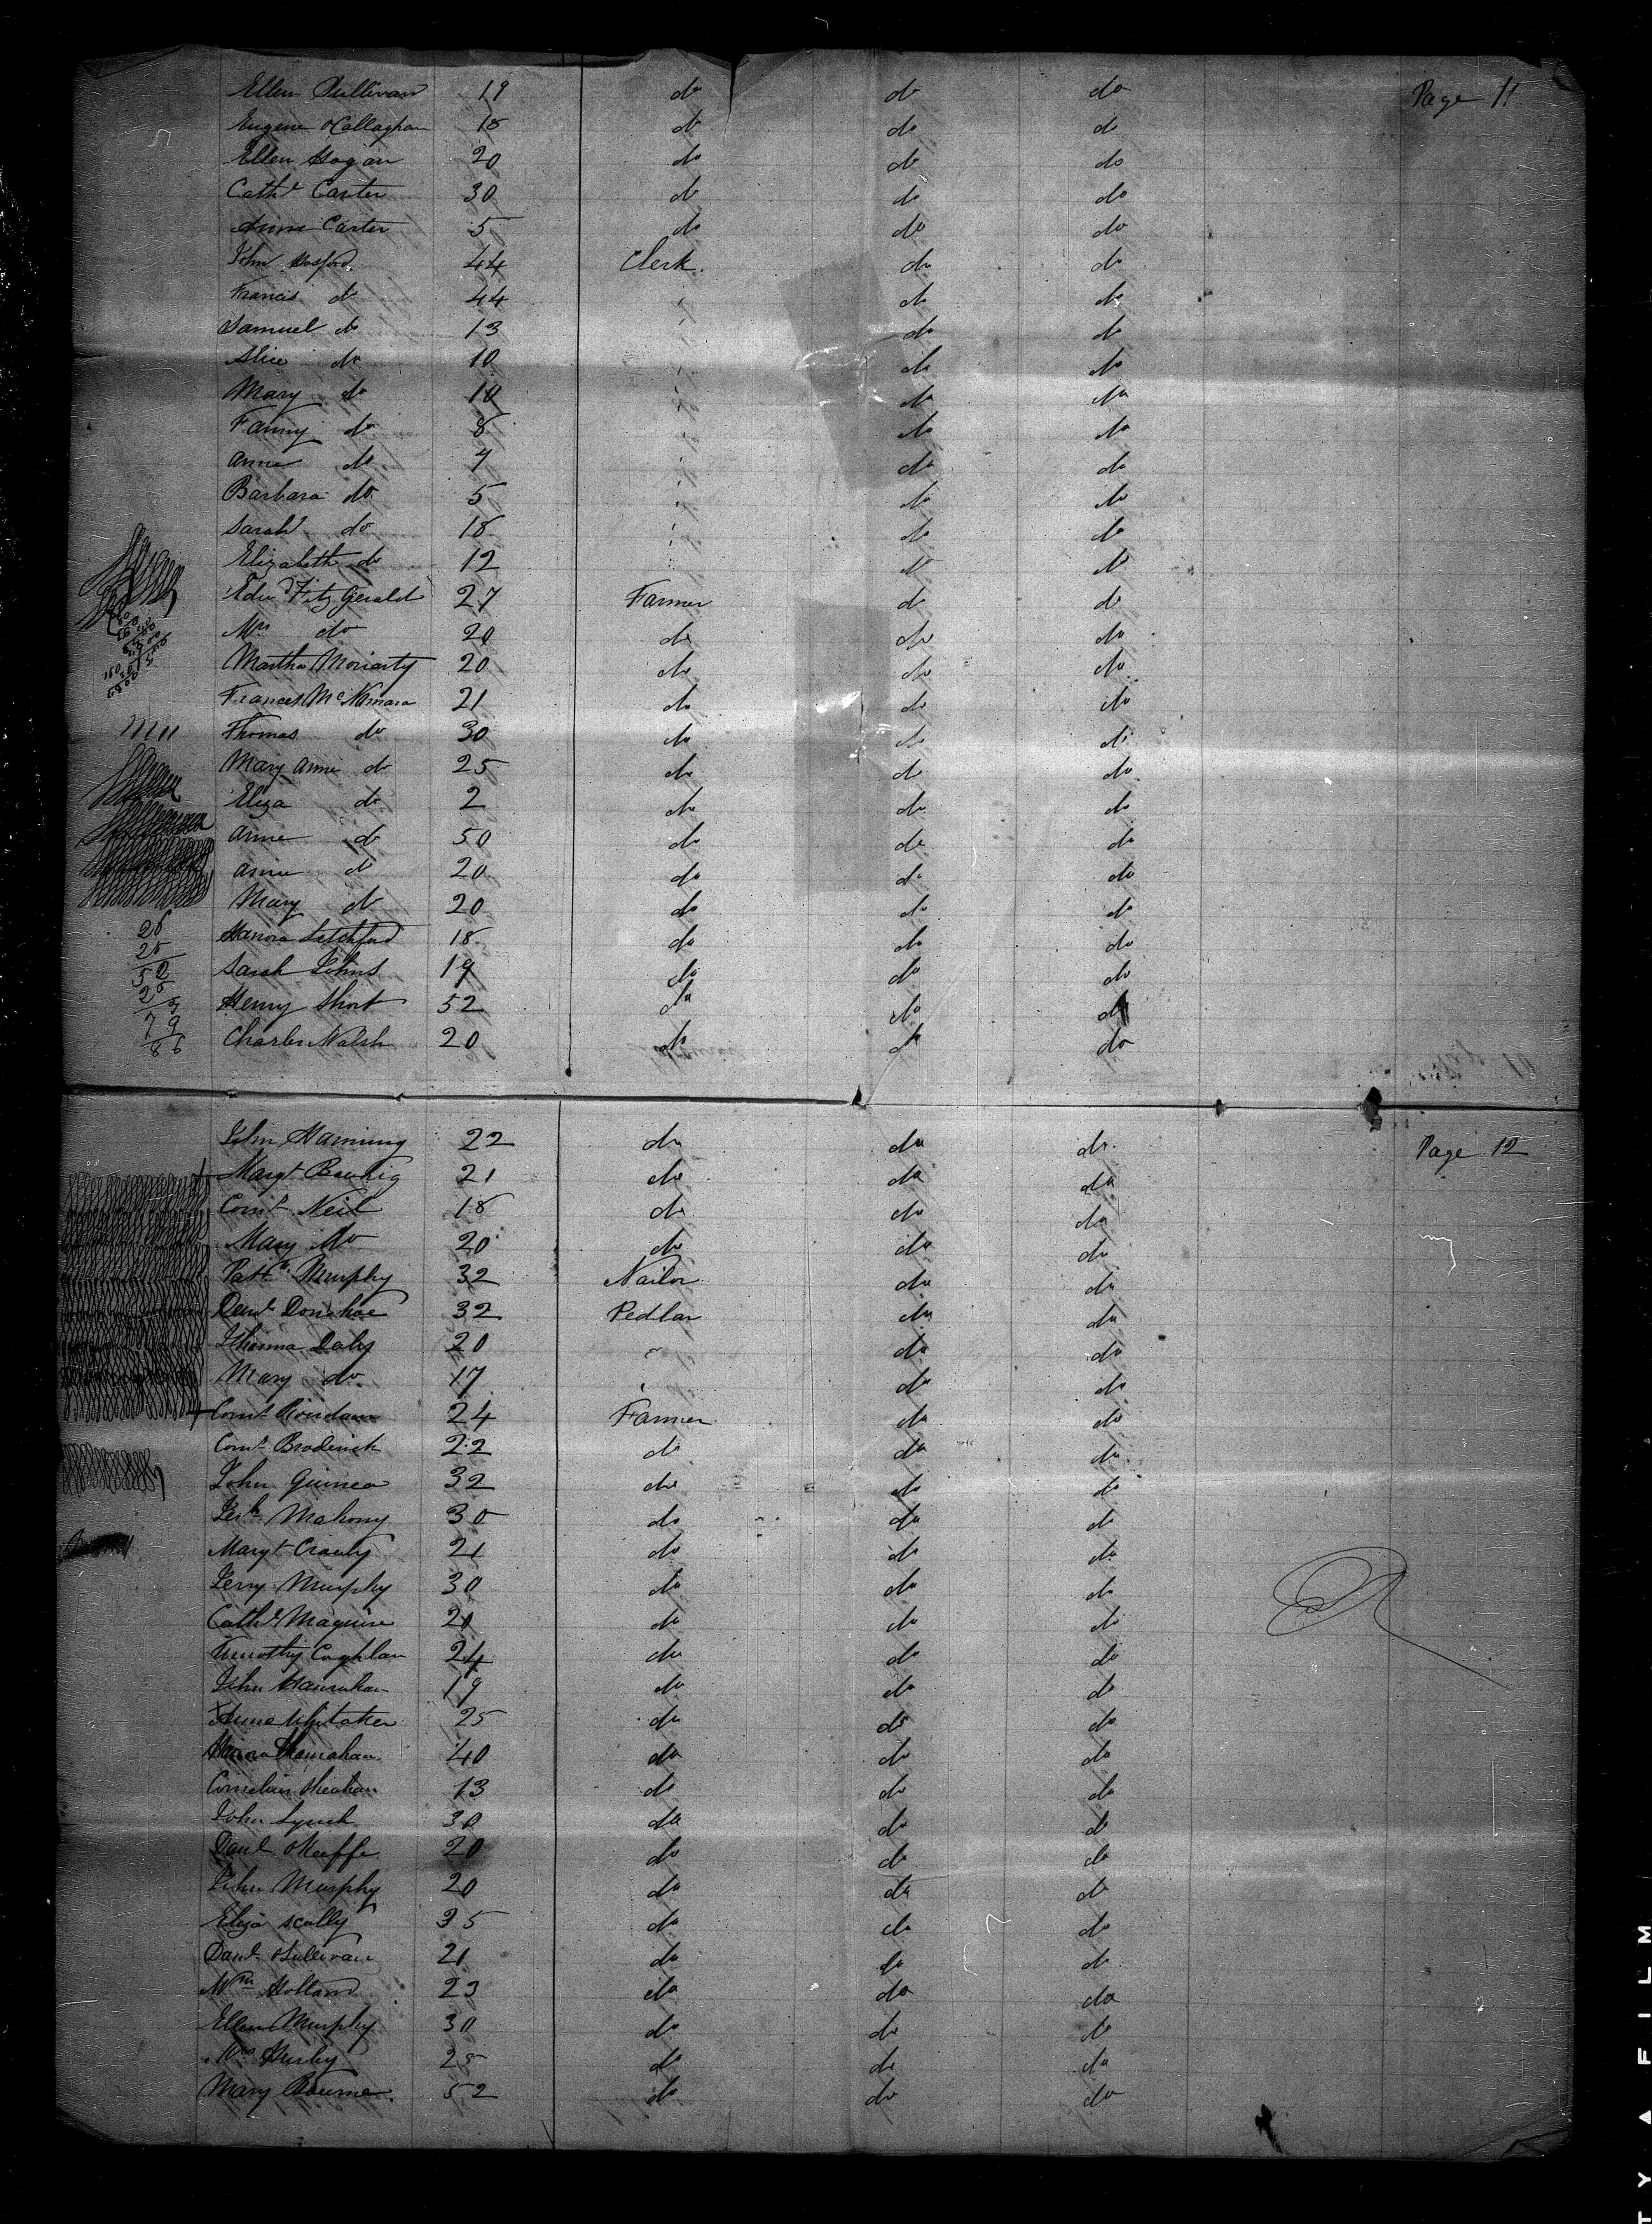 Ellen Sullivan 19 do do do Page 11
Eugene O'Callaghan 18 do do do
Ellen Hogan 20 do do do
Cathe Carter 30 do do do
Anne Carter 5 do do do
John Hosford 44 Clerk. do do
Francis do 44 " do do
Samuel do 13 " do do
Alice do 10 " do do
Mary do 10 " do do
Fanny do 8 " do do
Anne do 7 " do do
Barbara do 5 " do do
Sarah do 18 " do do
Elizabeth do 12 " do do
Edwd Fitz Gerald 27 Farmer do do
Mrs do 20 do do do
Martha Moriarty 20 do do do
Frances McNamara 21 do do do
Thomas do 30 do do do
Mary Anne do 25 do do do
Eliza do 2 do do do
Anne do 50 do do do
Anne do 20 do do do
Mary do 20 do do do
Hanora Letchford 18 do do do
Sarah Johns 19 do do do
Henry Short 52 do do do
Charles Walsh 20 do do do
John Hanning 22 do do do Page 12
Margt 21 do do do
Corns Neil 18 do do do
Mary do 20 do do do
Pattk Murphy 32 Nailor do do
Danl Donohoe 32 Pedlar do do
Johanna Daly 20 " do do
Mary do 17 " do do
Corns Riordan 24 Farmer do do
Corns Broderick 22 do do do
John Guinea 32 do do do
Jerh Mahony 30 do do do
Margt Crowly 21 do do do
Jerry Murphy 30 do do do
Cathe Maguire 20 do do do
Timothy Coghlan 24 do do do
John Hanrahan 19 do do do
Anne Whitaker 25 do do do
40 do do do
Cornelius Sheahan 13 do do do
John Lynch 30 do do do
Danl O'Keeffe 20 do do do
John Murphy 20 do do do
Eliza Scully 35 do do do
Danl O'Sullivan 21 do do do
Wm Holland 23 do do do
Ellen Murphy 30 do do do
Mrs Hurley 25 do do do
Mary Bourne 52 do do do